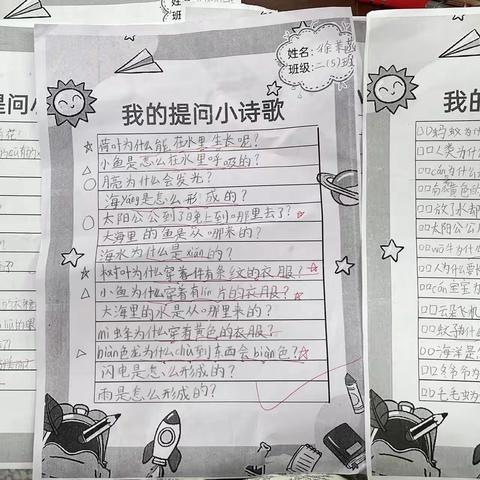 姓名:
班级:二(5)班
我的提问小诗歌
荷叶为什么能在水里生长呢？
小鱼是怎么在水里呼吸的？
月亮为什么会发光？
海yáng是怎么形成的？
太阳公公到了晚上到哪里去了？
大海里的鱼是从哪来的？
海水为什么是xián的？
树叶为什么穿着件有条纹的衣服？
小鱼为什么穿着有lín片的衣服？
大海里的水是从哪里来的？
mì蜂为什么穿着黄色的衣服？
biàn色龙为什么chù到东西会biàn色？
闪电是怎么形成的？
雨是怎么形成的？
提问小
我的
口口蚂蚁为什
口口人类为什
口口为什
口口放了水却
口口太阳公公
口口wō牛为什
口口人为什么要
口口cán宝宝为
口口云朵飞机
口口蚊子为什
口口海洋是
口口毛毛虫为